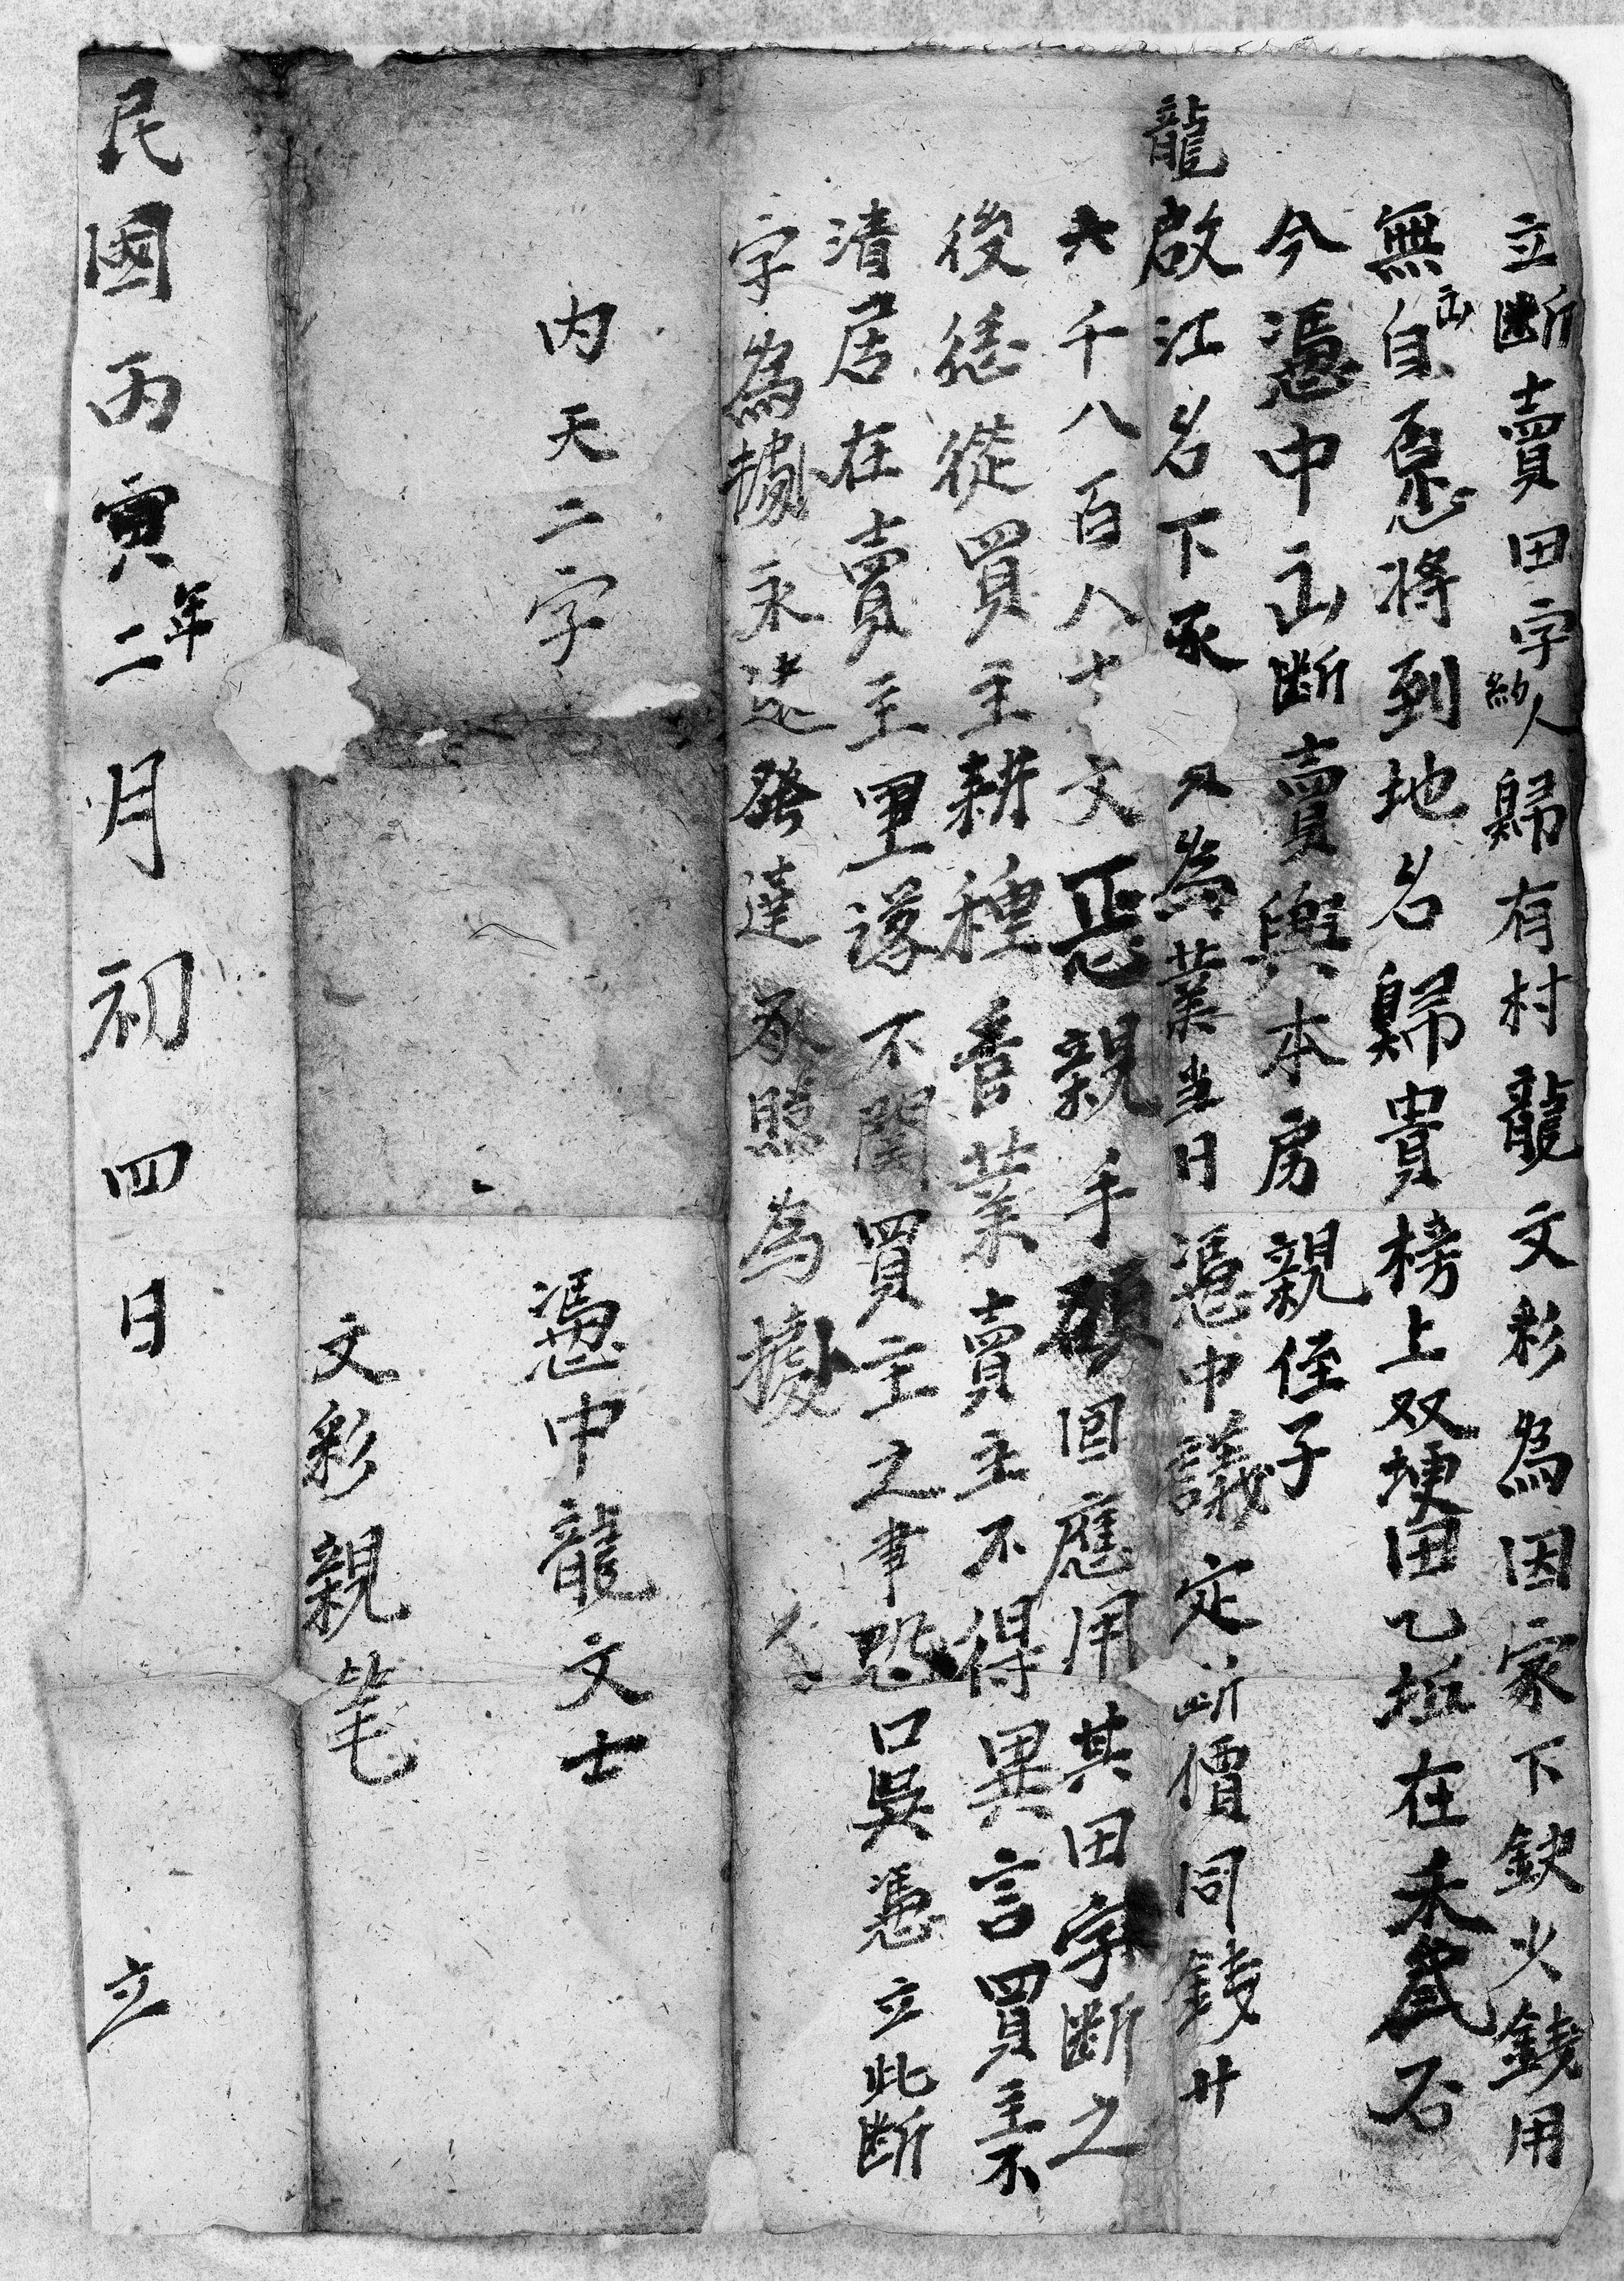 立斷賣田字約人歸有村龍文彩為因家下缺火錢用
無出自愿將到地名歸貴榜上双埂田乙坵在禾貳石
今憑中出斷賣與本房親侄子
龍啟江名下承 為業当日憑中議定断價同錢廿
六千八百八十文正親手領回應用其田字斷之
後憑從買主耕種晉業賣主不得異言買主不
清居在賣主里 不関買主之事恐口吳憑立此斷
字為據永遠發達承照為據
內天二字
憑中龍文士
文彩親笔
民國丙寅年二月初四日 立